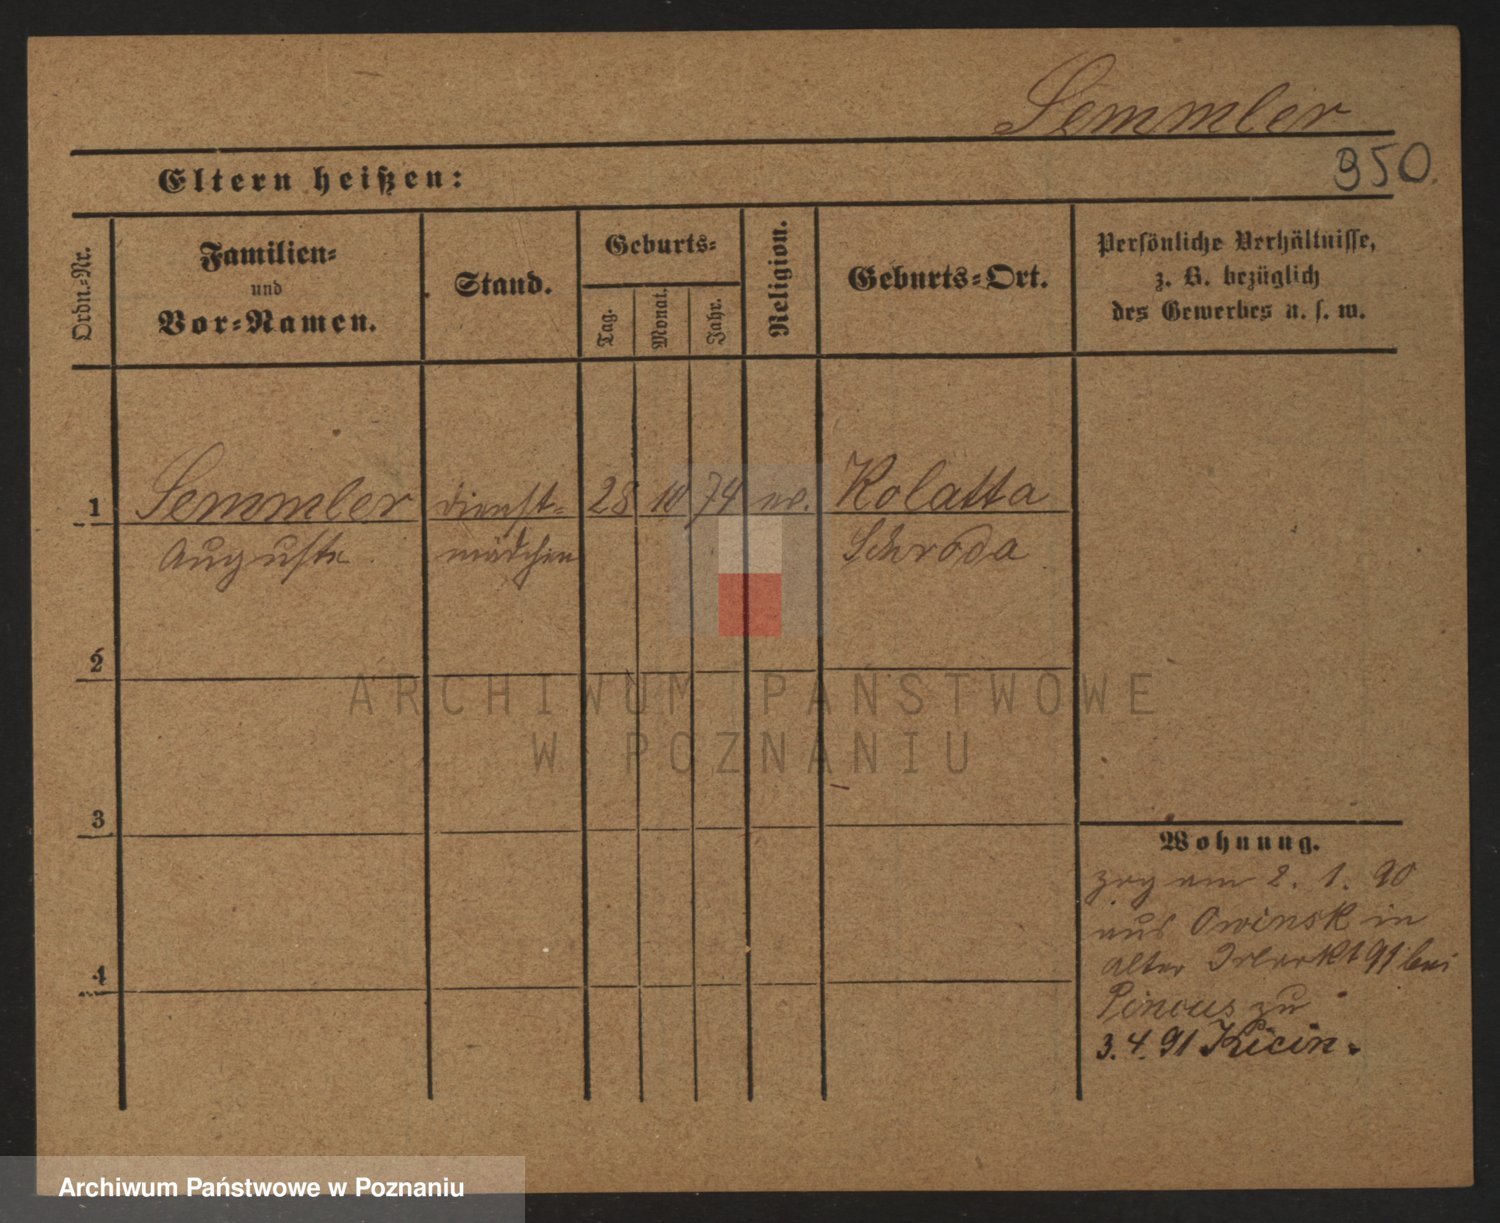 Semmler
Eltern heißen:
950.
Ordn.-Nr.
Familien-
und
Vor-Namen.
Stand.
Geburts-
Tag.
Monat.
Jahr.
Religion.
Geburts-Ort.
Persönliche Verhältnisse,
z. B. bezüglich
des Gewerbes u. s. w.
1 Semmler Dienst- 28 10 74 ev. Kolatta
Auguste mädchen Schroda
2
3
4
Wohnung.
zog am 2. 1. 90
aus Owinsk in
Alter 91 bei
Pincus zu
3. 4. 91 Kicin.
ARCHIWUM PAŃSTWOWE
W POZNANIU
Archiwum Państwowe w Poznaniu